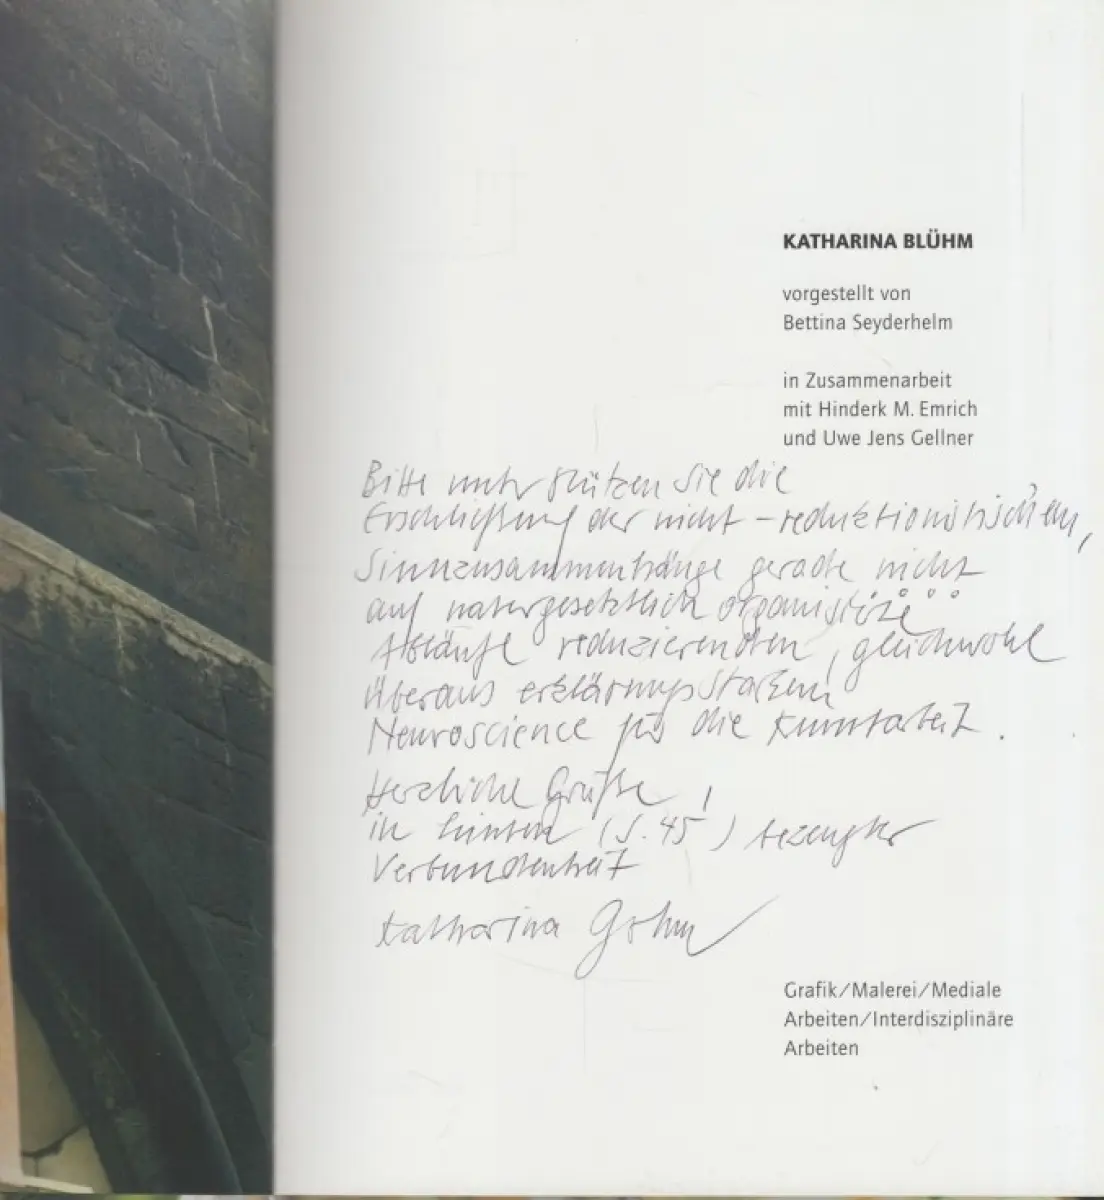 KATHARINA BLÜHM
vorgestellt von
Bettina Seyderhelm
in Zusammenarbeit
mit Hinderk M. Emrich
und Uwe Jens Gellner
Bitte unterstützen Sie die
Erschließung der nicht-reduktionistischen,
Sinnzusammenhänge gerade nicht
auf naturgesetzlich organisierte
Abläufe reduzierenden, gleichwohl
überaus erklärungsstarken
Neuroscience für die Kunstarbeit.
Herzliche Grüße!
in hinten (S. 45) bezeugter
Verbundenheit
Katharina
Grafik/Malerei/Mediale
Arbeiten/Interdisziplinäre
Arbeiten